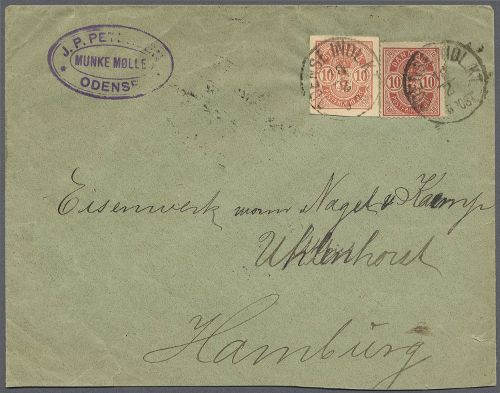 J. P. PETERSEN
MUNKE MØLLE
ODENSE
10 10
10 10
ODENSE INDL. KT.
Eisenwerk vorm Nagel & Kaemp
Uhlenhorst
Hamburg